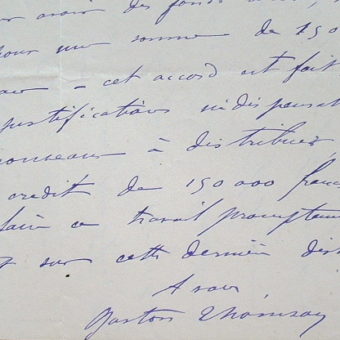 avoir des fonds
pour une somme de 150
cet accord est fait
justifications indispensab
nouveaux à distribuer
crédit de 150 000 franc
faire ce travail prompteme
sur cette dernière dis
A vous
Gaston Thomson